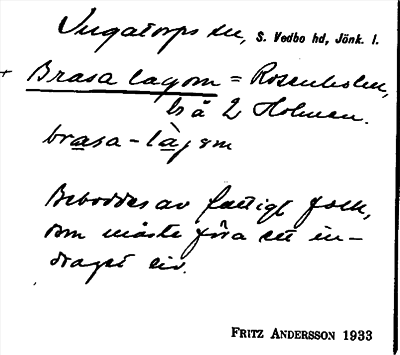 Ingatorps sn, S. Vedbo hd, Jönk. l.
+ Brasa lagom = Rosenholm,
bså 2 Holmen.
brasa-làgom
Beboddes av fattigt folk,
som måste föra ett in-
draget liv.
FRITZ ANDERSSON 1933